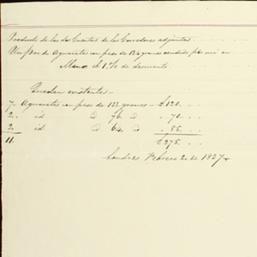 Producto de las dos Cuentas de los Corredores adjuntas
de Aguacates con peso de 124 granos vendido por mi en
Mano al 1% de descuento
Quedan existentes
7. Aguacates con peso de 122 granos — £120. . .
2. id D 76 D . 70. . .
2. id D 64 D . 85. . .
11. £275. . .
Londres Febrero 2 de 1827